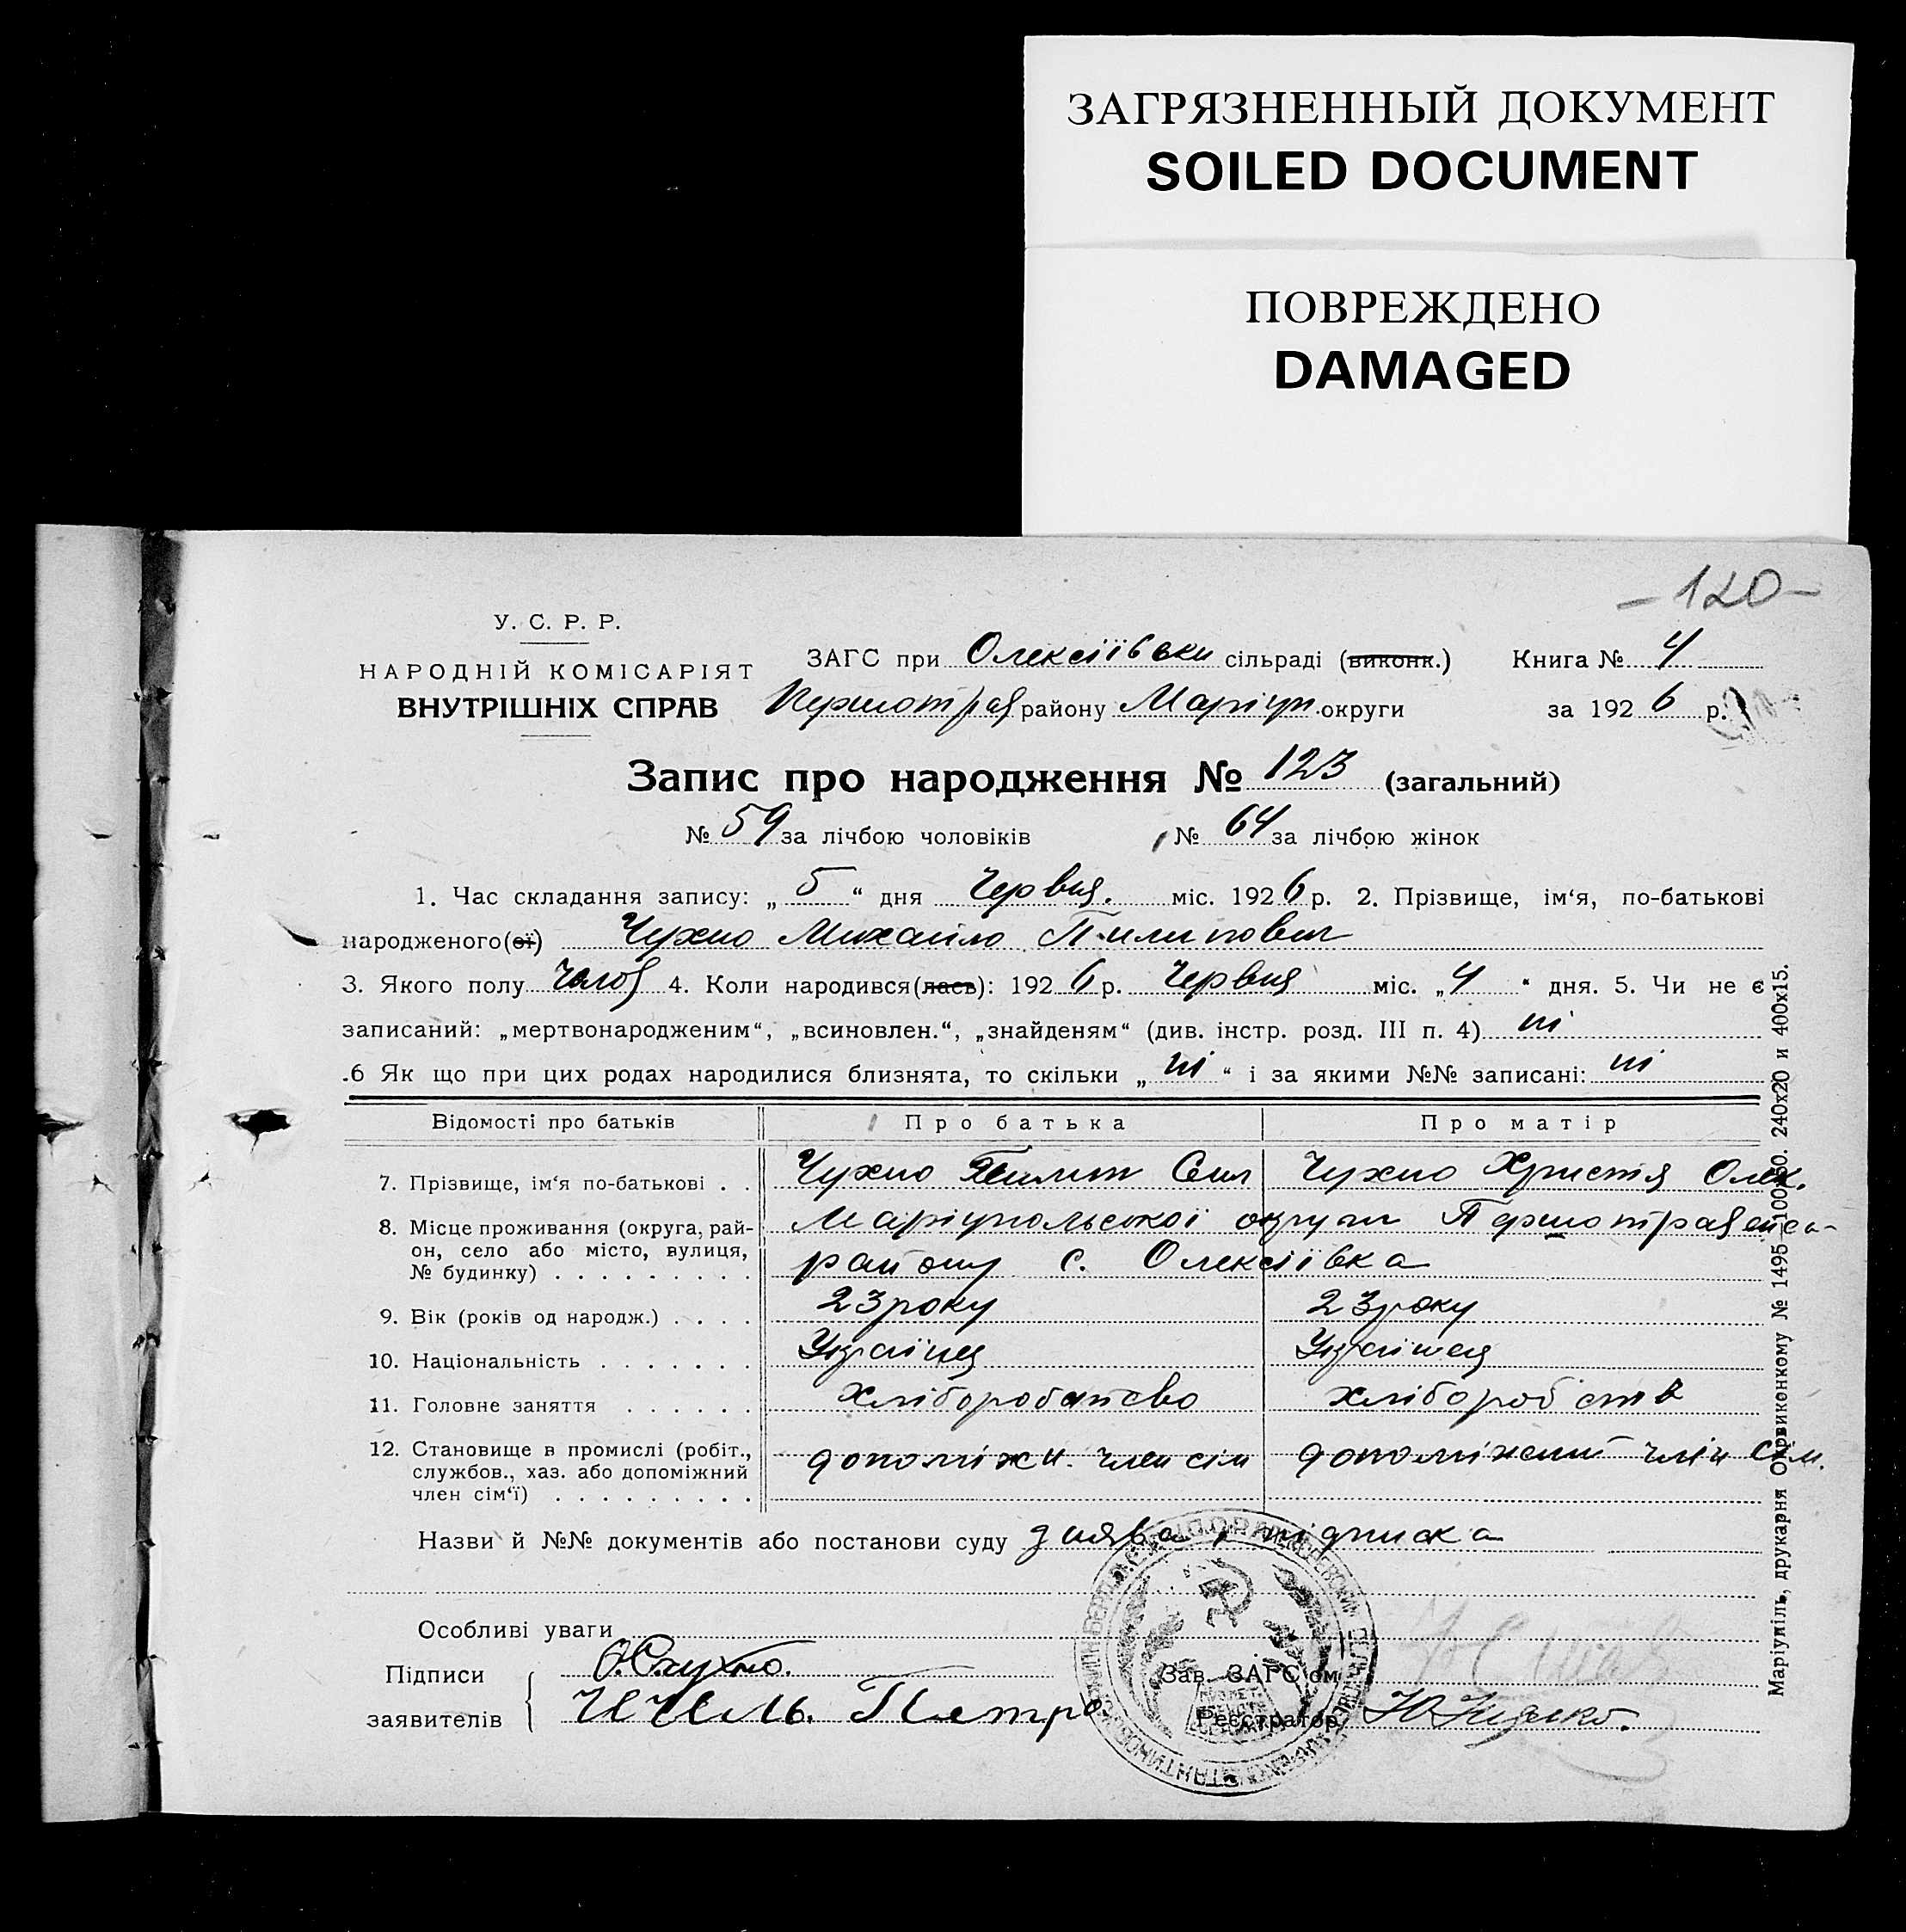 ЗАГРЯЗНЕННЫЙ ДОКУМЕНТ
SOILED DOCUMENT
ПОВРЕЖДЕНО
DAMAGED
-120-
У. С. Р. Р.
НАРОДНІЙ КОМІСАРІЯТ
ВНУТРІШНІХ СПРАВ
ЗАГС при Олексіївськи сільраді (виконк.) Книга № 4
Першотрав району Маріуп. округи за 1926 р.
Запис про народження № 123 (загальний)
№ 59 за лічбою чоловіків № 64 за лічбою жінок
1. Час складання запису: „ 5 “ дня Червня. міс. 1926 р. 2. Прізвище, ім‘я, по-батькові
народженого(ої) Чухно Михайло Пилипович
3. Якого полу Чолов 4. Коли народився(лась): 1926 р. Червня міс. „ 4 “ дня. 5. Чи не є
записаний: „мертвонародженим“, „всиновлен.“, „знайденям“ (див. інстр. розд. III п. 4) ні
.6 Як що при цих родах народилися близнята, то скільки „ ні “ і за якими №№ записані: ні
Відомості про батьків Про батька Про матір
7. Прізвище, ім‘я по-батькові . . Чухно Пилип Сем Чухно Христя Олек.
8. Місце проживання (округа, рай- Маріупольської округи Першотравенсь-
он, село або місто, вулиця,
№ будинку) . . . . . . . . . району с. Олексіївка
9. Вік (років од народж.) . . . . 23 року 23 року
10. Національність . . . . . . . Українця
11. Головне заняття . . . . . . хліборобство хліборобств
12. Становище в промислі (робіт., допоміжн. член сім допоміжний член сім.
службов., хаз. або допоміжний
член сім‘ї) . . . . . . . . .
Назви й №№ документів або постанови суду заява і підписка
Особливі уваги
Підписи
заявителів Петро
Зав. ЗАГС‘ом
Реєстратор
Маріупіль, друкарня Окрвиконкому № 1495—100x50. 240x20 и 400x15.